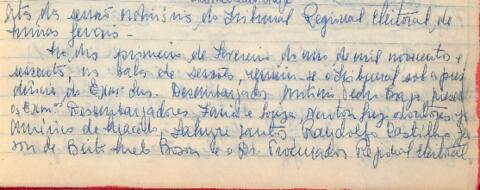 Ata da sessão ordinária do Tribunal Regional eleitoral de
minas gerais -
Ao dia primeiro de fevereiro do ano de mil novecentos e
sessenta, na sala de sessões, reuniu-se o Tribunal sob a presi
dência do Exmo Snr. Desembargador Antônio Pedro Braga, presen
os Exmos Desembargadores Faria e Souza, Newton Luz,
de Macedo, Santos Randolfo Castilho
son de Brito Melo e o Dr. Procurador Regional eleitoral